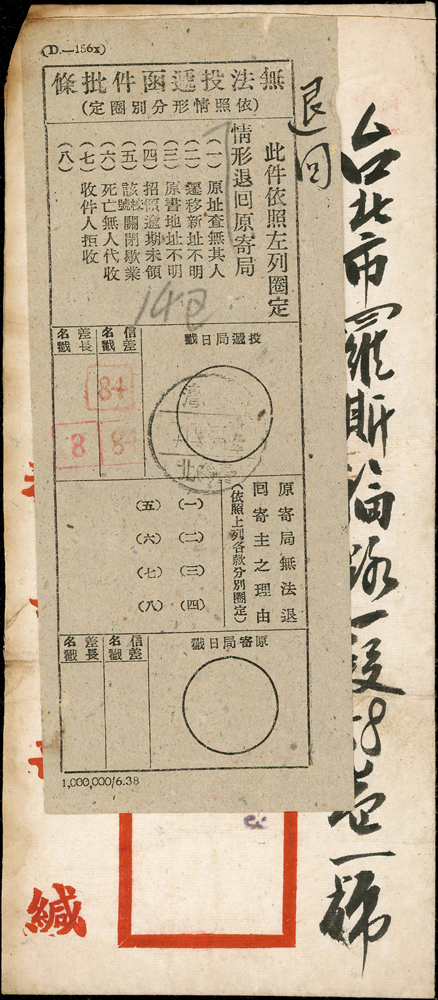 台北市羅斯福路一段78巷一號
退回
(D.—156x)
無法投遞函件批條
(依照情形分別圈定)
此件依照左列圈定
情形退回原寄局
(一) 原址查無其人
(二) 遷移新址不明
(三) 原書地址不明
(四) 招領逾期未領
(五) 該號關閉歇業
(六) 死亡無人代收
(七) 收件人拒收
(八)
投遞局日戳
信差名戳
差長名戳
84
8
原寄局無法退
回寄主之理由
(依照上列各款分別圈定)
(一) (二) (三) (四)
(五) (六) (七) (八)
原寄局日戳
信差名戳
差長名戳
1,000,000/6.38
緘